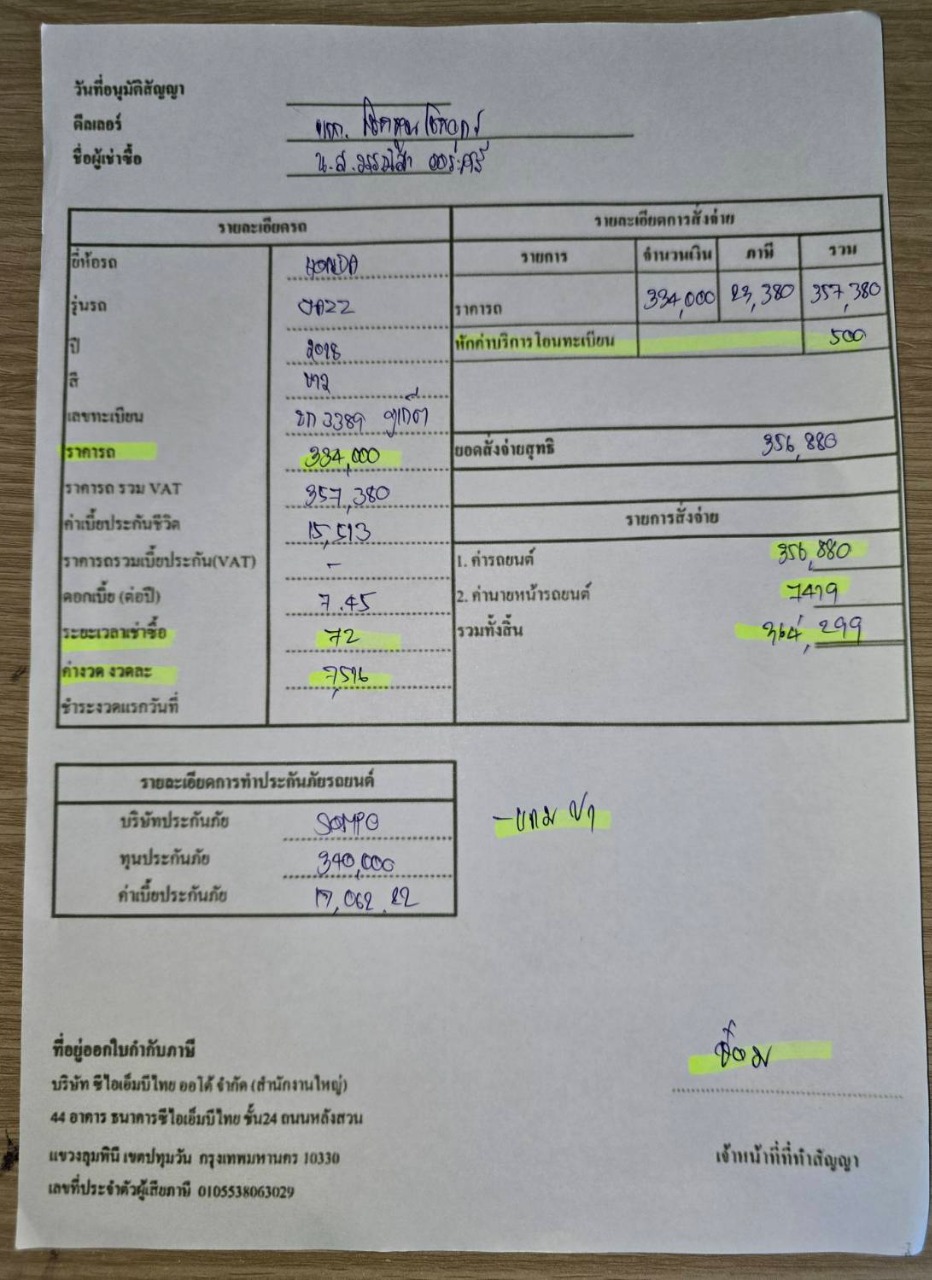 วันที่อนุมัติสัญญา
ดีลเลอร์ หจก.
ชื่อผู้เช่าซื้อ น.ส.
รายละเอียดรถ
ยี่ห้อรถ HONDA
รุ่นรถ JAZZ
ปี 2018
สี ขาว
เลขทะเบียน 3389 ภูเก็ต
ราคารถ 334,000
ราคารถ รวม VAT 357,380
ค่าเบี้ยประกันชีวิต 15,513
ราคารถรวมเบี้ยประกัน(VAT) -
ดอกเบี้ย (ต่อปี) 7.45
ระยะเวลาเช่าซื้อ 72
ค่างวด งวดละ 7,516
ชำระงวดแรกวันที่
รายละเอียดการสั่งจ่าย
รายการ จำนวนเงิน ภาษี รวม
ราคารถ 334,000 23,380 357,380
หักค่าบริการโอนทะเบียน 500
ยอดสั่งจ่ายสุทธิ 356,880
รายการสั่งจ่าย
1. ค่ารถยนต์ 356,880
2. ค่านายหน้ารถยนต์ 7419
รวมทั้งสิ้น 364,299
รายละเอียดการทำประกันภัยรถยนต์
บริษัทประกันภัย SOMPO
ทุนประกันภัย 340,000
ค่าเบี้ยประกันภัย 17,062.22
ที่อยู่ออกใบกำกับภาษี
บริษัท ซีไอเอ็มบีไทย ออโต้ จำกัด (สำนักงานใหญ่)
44 อาคาร ธนาคารซีไอเอ็มบีไทย ชั้น24 ถนนหลังสวน
แขวงลุมพินี เขตปทุมวัน กรุงเทพมหานคร 10330
เลขที่ประจำตัวผู้เสียภาษี 0105538063029
เจ้าหน้าที่ที่ทำสัญญา